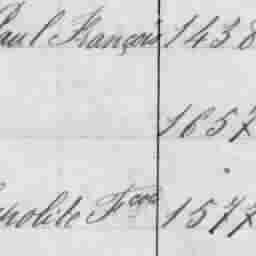 Paul François 1438
1657
polite Fcois 1577